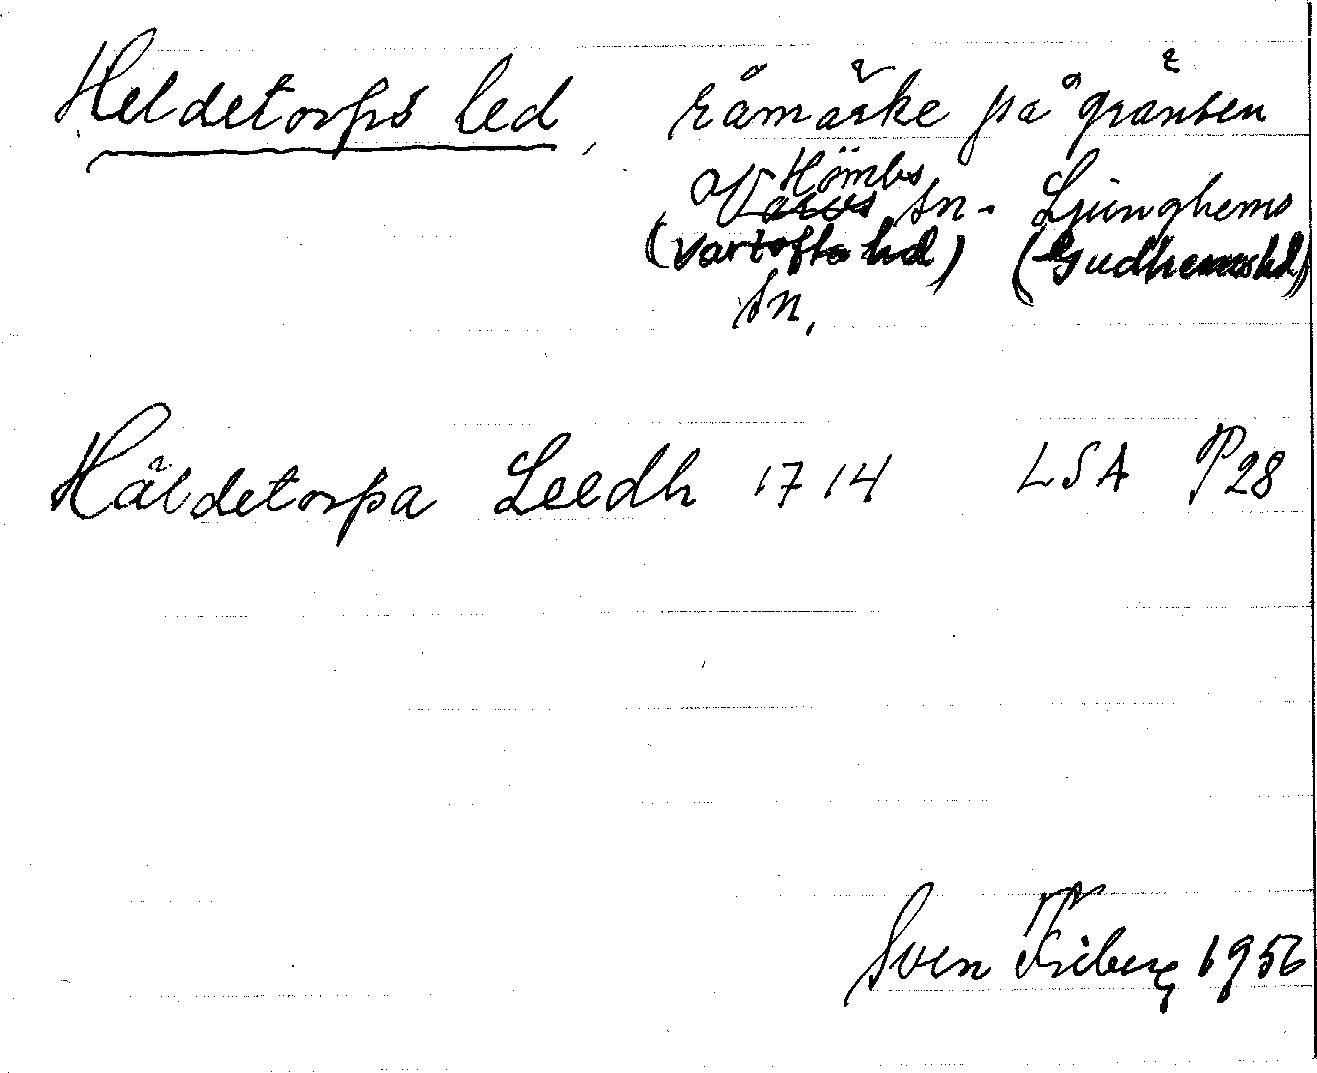 Heldetorps led, råmärke på gränsen
Hömbs
Varvs sn - Ljunghems
(Vartofta hd) (Gudhems hd)
sn.
Häldetorpa Leedh 1714 LSA P28
Sven Friberg 1956